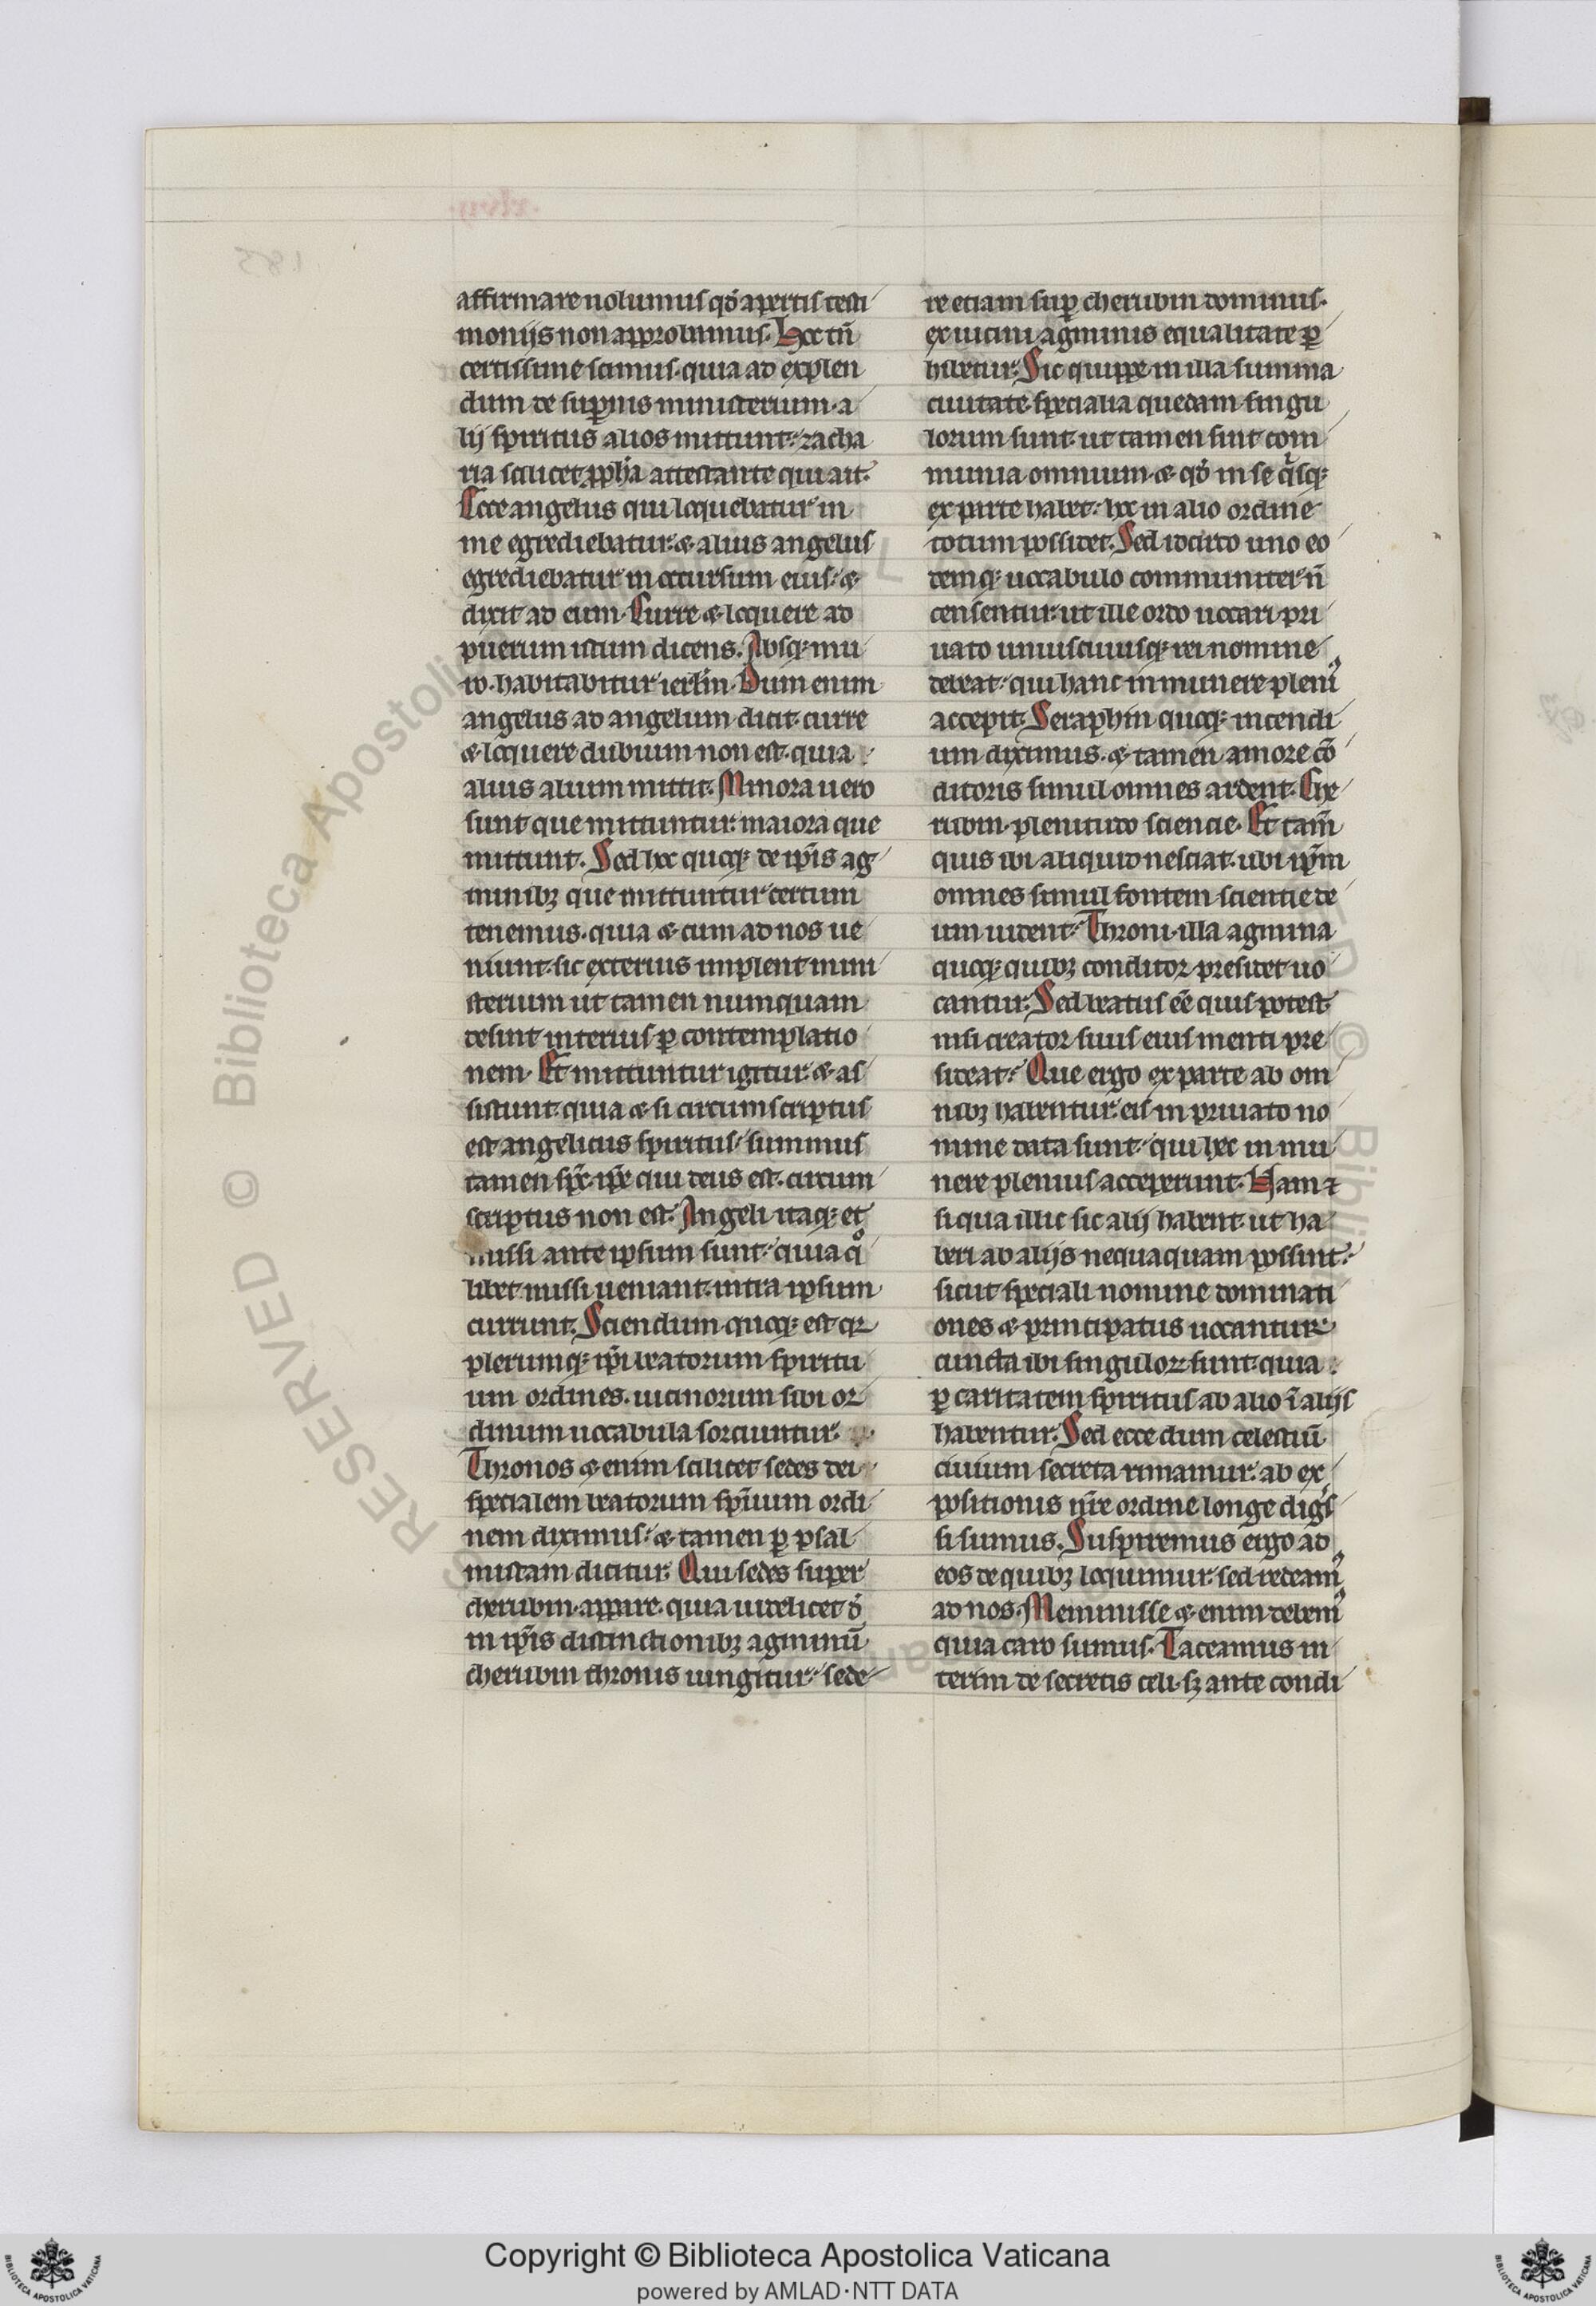 affirmare nolumus qđ apertis testi
monijs non approbamus. Hoc tn̄
certissime scimus. quia ad explen
dum de suꝑnis ministerium. a
lij spiritus alios mittunt. zacha
ria scilicet ꝓph̄a attestante qui ait.
Ecce angelus qui loquebatur in
me egrediebatur. & alius angelus
egrediebatur in occursum eius. &
dixit ad eum. Curre & loquere ad
puerum istum dicens. Absq; mu
ro. habitabitur ierl̄m. Dum enim
angelus ad angelum dicit curre
& loquere dubium non est. quia
alius alium mittit. Minora uero
sunt que mittuntur. maiora que
mittunt. Sed hoc quoq; de ip̄is ag
minibꝫ que mittuntur certum
tenemus. quia & cum ad nos ue
niunt. sic exterius implent mini
sterium ut tamen numquam
desint interius ꝑ contemplatio
nem. Et mittuntur igitur. & as
sistunt. quia & si circumscriptus
est angelicus spiritus. summus
tamen sp̄c. ip̄e qui deus est. circum
scriptus non est. Angeli itaq; et
missi ante ipsum sunt. quia qͦ
libet missi ueniant. intra ipsum
currunt. Sciendum quoq; est qꝛ
plerumq; ip̄i beatorum spiritu
um ordines. uicinorum sibi or
dinum uocabula sorciuntur.
Thronos & enim scilicet sedes dei
specialem beatorum sp̄iuum ordi
nem diximus. & tamen ꝑ psal
mistam dicitur. Qui sedes super
cherubin. appare. quia uidelicet đ
in ip̄is distinctionibꝫ agminū
cherubin thronis iungitur. sede
re etiam suꝑ cherubin dominus.
ex uicini agminis equalitate ꝑ
hibetur. Sic quippe in illa summa
ciuitate. specialia quedam singu
lorum sunt. ut tamen sint com
munia omnium. & qđ in se qͥsq;
ex parte habet. hoc in alio ordine
totum possidet. Sed idcirco uno eo
demq; uocabulo communiter n̄
censentur. ut ille ordo uocari pri
uato uniuscuiusq; rei nomine
debeat. qui hanc in munere pleniꝰ
accepit. Seraphin quoq; incendi
um diximus. & tamen amore cō
ditoris simul omnes ardent. Che
rubin. plenitudo sciencie. Et tam̄
quis ibi aliquid nesciat. ubi ip̄m
omnes simul fontem scientie de
um uident. Throni. illa agmina
quoq; quibꝫ conditor presidet uo
cantur. Sed beatus eē quis potest
nisi creator suus eius menti pre
sideat. Que ergo ex parte ab om
nibꝫ habentur. eis in priuato no
mine data sunt. qui hec in mu
nere plenius acceperunt. Nam ⁊
si qua illic sic alij habent. ut ha
beri ab alijs nequaquam possint.
sicut speciali nomine dominati
ones & principatus uocantur.
cuncta ibi singuloꝝ sunt. quia
ꝑ caritatem spiritus ab alio ī alijs
habentur. Sed ecce dum celestiū
ciuium secreta rimamur. ab ex
positionis nr̄e ordine longe digͤs
si sumus. Suspiremus ergo ad
eos de quibꝫ loquimur. sed redeamꝰ
ad nos. Meminisse & enim debemꝰ
quia caro sumus. Taceamus in
terim de secretis celi. sꝫ ante condi
Copyright © Biblioteca Apostolica Vaticana
powered by AMLAD·NTT DATA